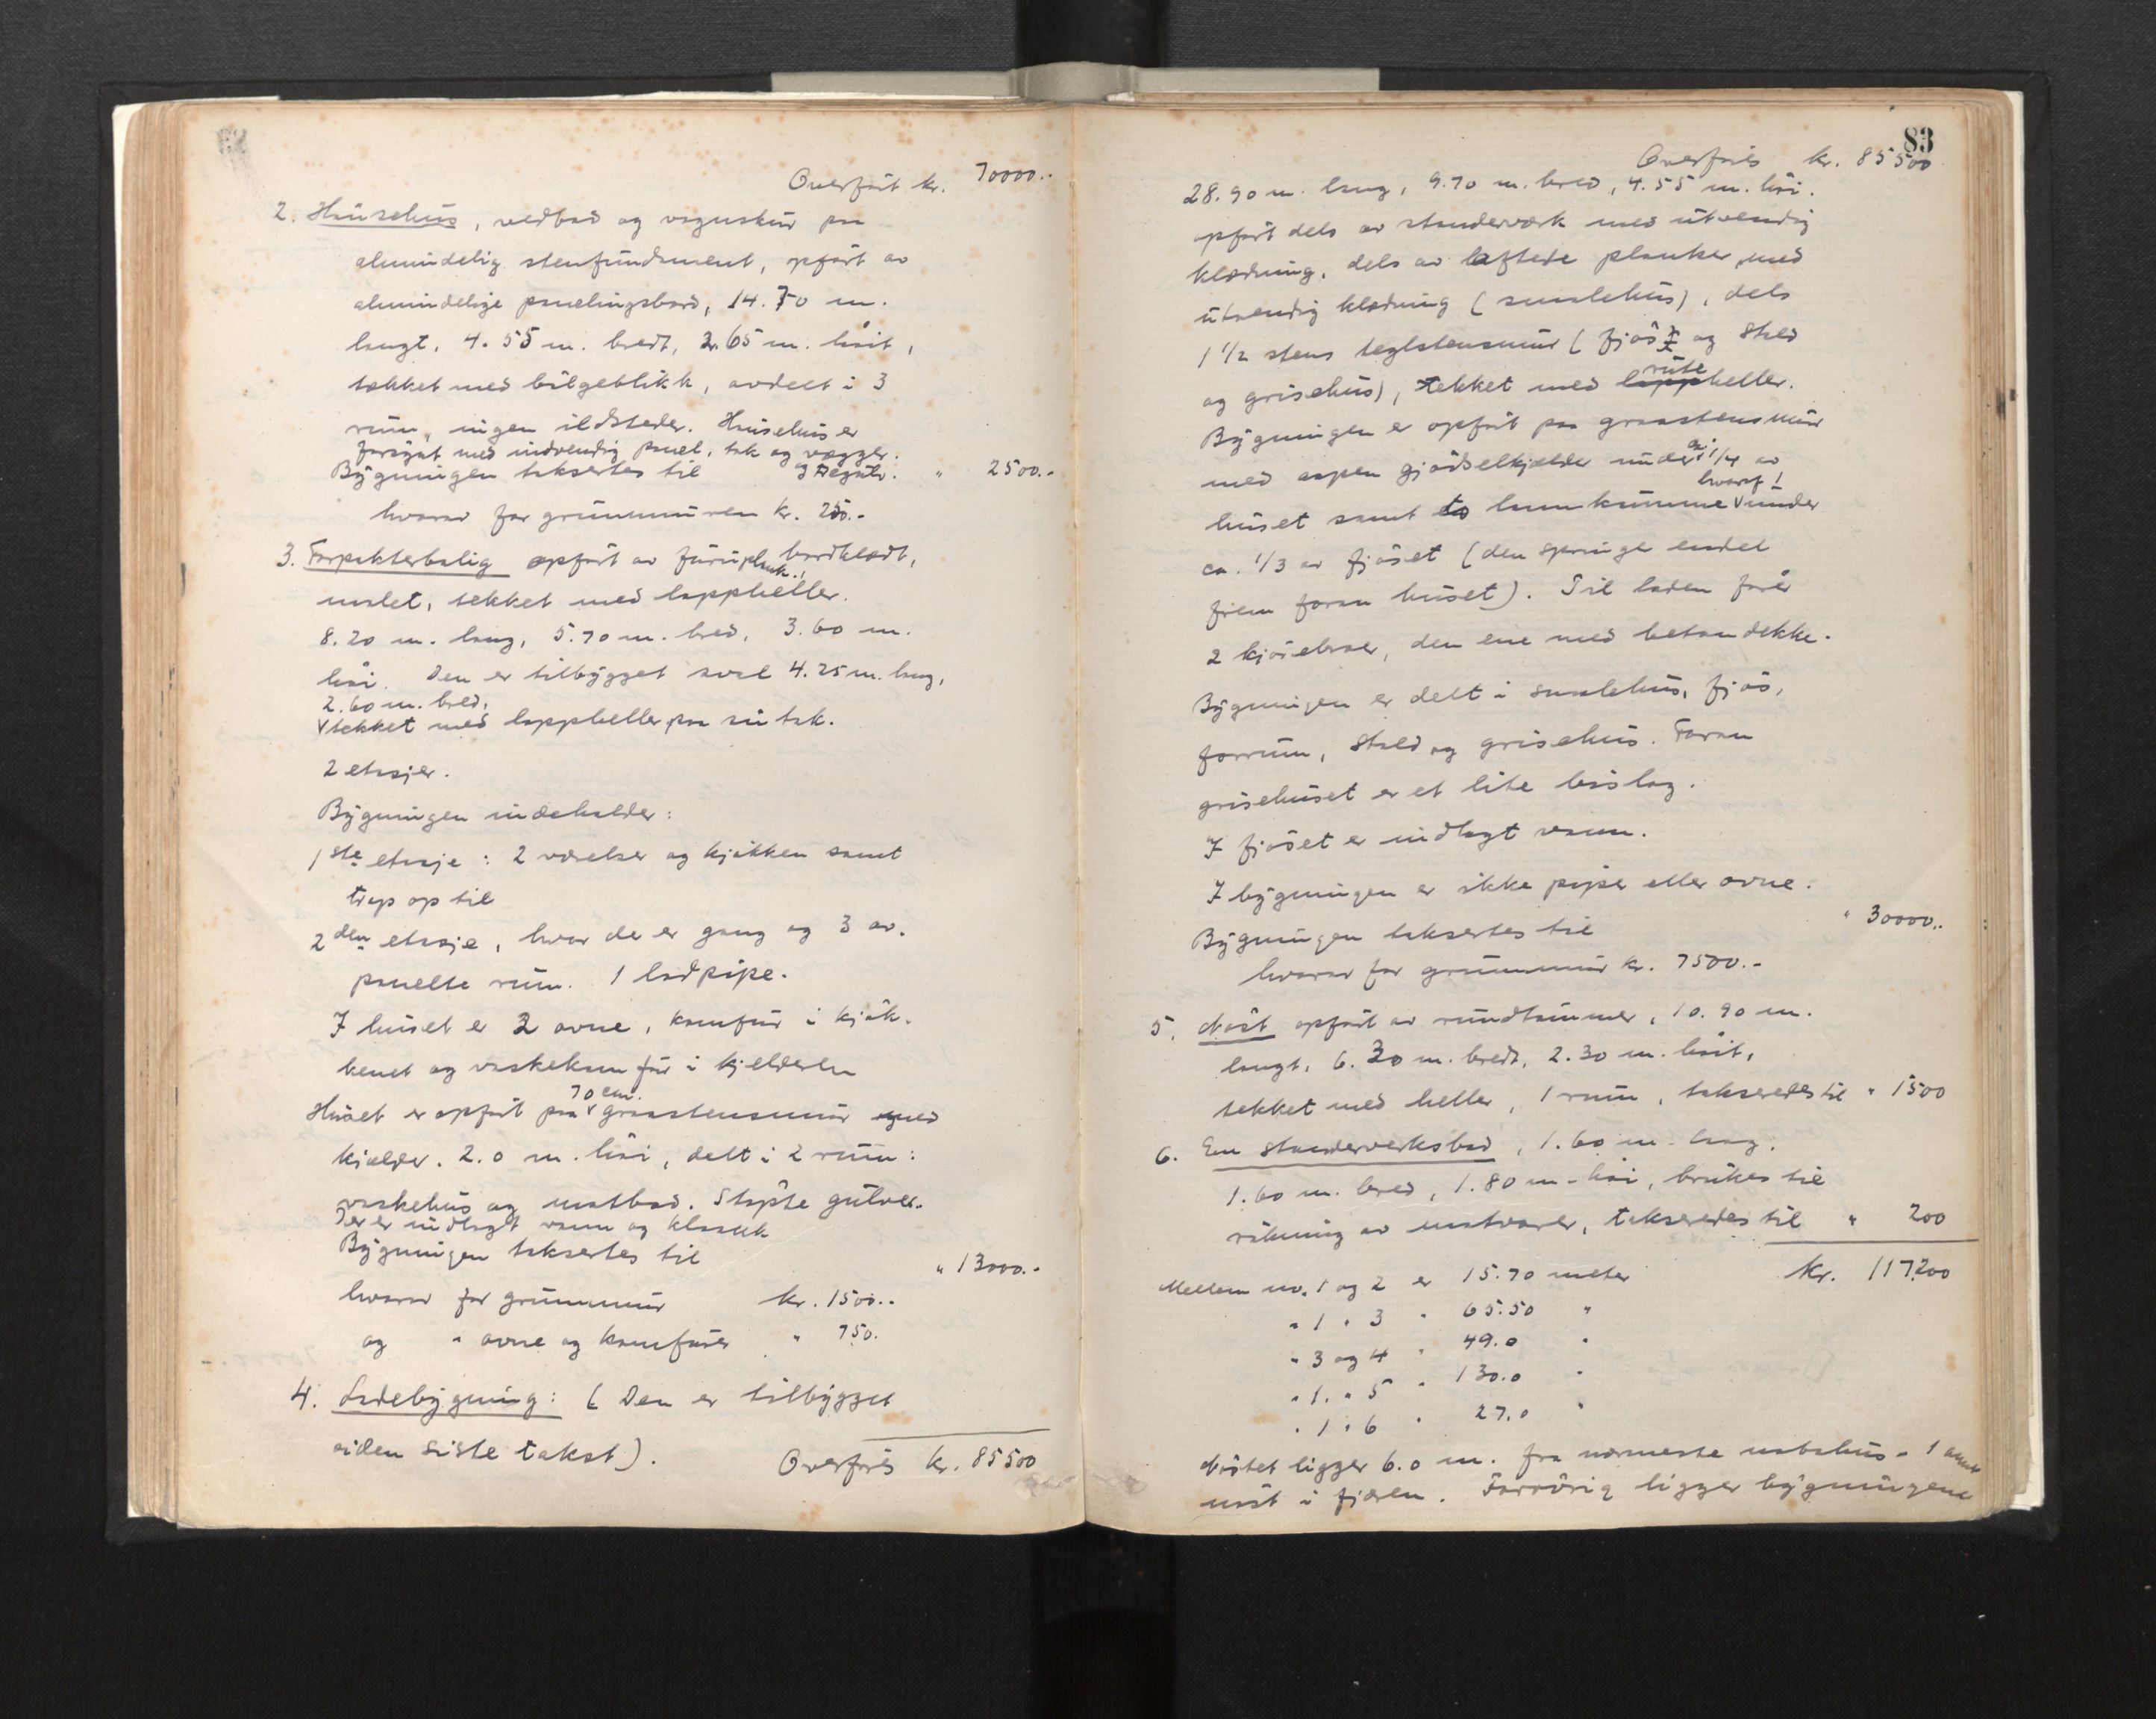 Overført kr. 70000.-
2. Hønsehus, vedbod og vognskur paa
almindelig stenfundament, opført av
almindelige panelingsbord, 14.70 m.
langt, 4.55 m. bredt, 2.65 m. høit,
tækket med bølgeblikk, avdelt i 3
rum, ingen ildsteder. Hønsehus er
forsynt med indvendig panel, tak og vægger.
Bygningen taksertes til " 2500.-
hvorav for grunnmuren kr. 250.-
3. Forpakterbolig opført av furuplank, bordklædt,
malet, tekket med lappheller.
8.20 m. lang, 5.70 m. bred, 3.60 m.
høi. Den er tilbygget sval 4.25 m. lang,
2.60 m. bred,
tekket med lappheller paa sutak.
2 etasjer.
Bygningen indeholder:
1ste etasje: 2 værelser og kjøkken samt
trap op til
2den etasje, hvor der er gang og 3 av.
panelte rum. 1 lodpipe.
I huset er 2 ovne, komfur i kjøk-
kenet og vaskekomfur i kjelderen
Huset er opført paa 70 cm. graastensmur med
kjælder. 2.0 m. høi, delt i 2 rum:
vaskehus og matbod. Støpte gulver.
Der er indlagt vann og kloakk
Bygningen taksertes til " 13000.-
hvorav for grunnmur kr. 1500.-
og " ovne og komfurer " 750.
4. Ladebygning: ( Den er tilbygget
siden siste takst).
Overføres kr. 85500
83
Overføres kr. 85500
28.90 m. lang, 9.70 m. bred, 4.55 m. høi.
opført dels av standerværk med utvendig
klædning, dels av laftede planker med
utvendig klædning ( smalehus), dels
1 1/2 stens teglstensmur ( fjøs og stald
og grisehus), tekket med ruteheller.
Bygningen er opført paa graastensmur
med aapen gjødselkjælder under ca. 1/4 av
huset samt to lannkumme hvorav 1 under
ca. 1/3 av fjøset (den springe endel
frem foran huset). Til laden fører
2 kjørebroer, den ene med betondekke.
Bygningen er delt i smalehus, fjøs,
forrum, stald og grisehus. Foran
grisehuset er et lite bislag.
I fjøset er indlagt vann.
I bygningen er ikke piper eller ovne.
Bygningen taksertes til " 30000.-
hvorav for grunnmur kr. 7500.-
5. Nøst opført av rundtømmer, 10.90 m.
langt, 6.30 m. bredt, 2.30 m. høit,
tekket med heller, 1 rum, takseredes til " 1500
6. En standerverksbod, 1.60 m. lang.
1.60 m. bred, 1.80 m. høi, brukes til
røkning av matvarer, takseredes til " 200
kr. 117200
Mellem nr. 1 og 2 er 15.70 meter
" 1 " 3 " 65.50 "
" 3 og 4 " 49.0 "
" 1. " 5 " 130.0 "
" 1 " 6 " 27.0 "
Nøstet ligger 6.0 m. fra nærmeste nabohus - 1 annet
nøst i fjæren. Forøvrig ligger bygningene